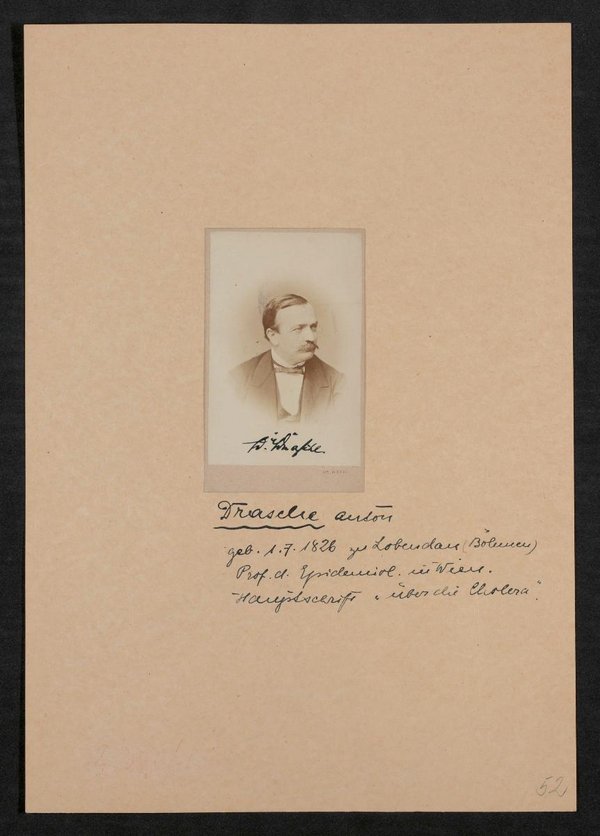 Dr. Drasche
Drasche Anton
geb. 1.7.1826 zu Lobendau (Böhmen)
Prof. d. Epidemiol. in Wien.
Hauptschrift „über die Cholera".
52